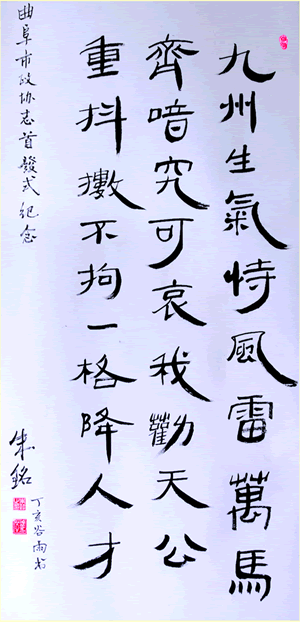 九州生氣恃風雷萬馬
齊喑究可哀我勸天公
重抖擻不拘一格降人才
曲阜市政协志首發式纪念
朱銘
丁亥谷雨书